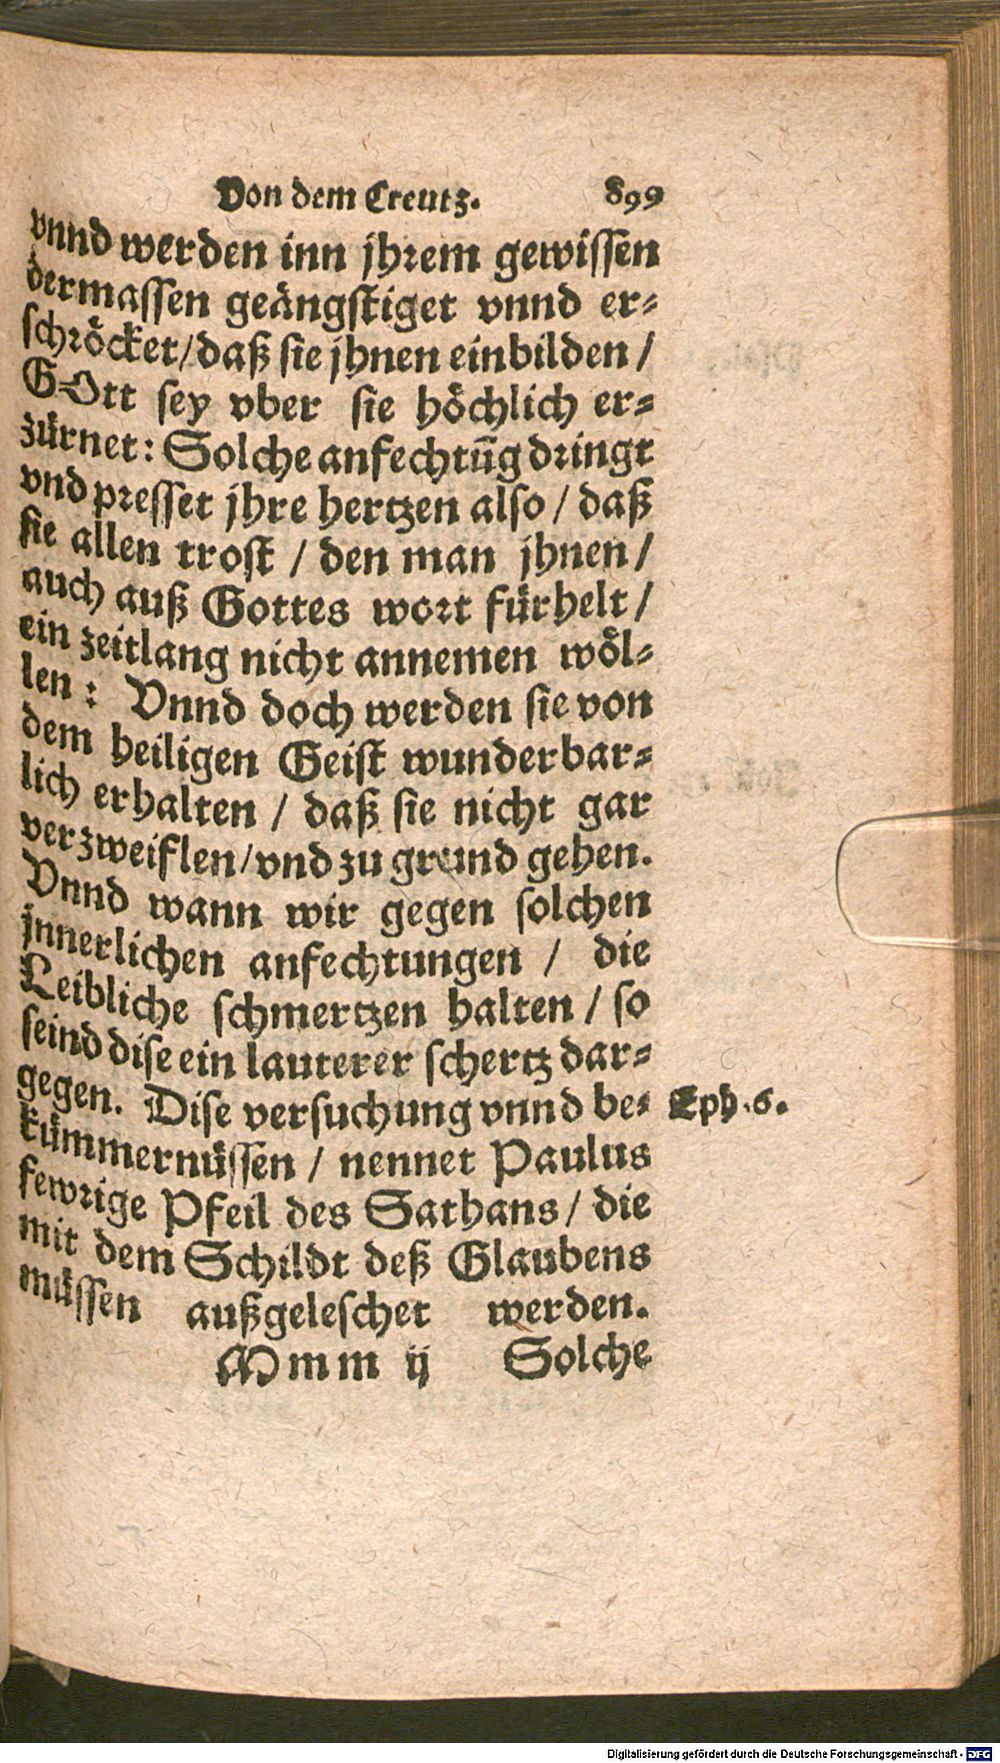 Von dem Creutz. 899
vnnd werden inn jhrem gewissen
dermassen geängstiget vnnd er-
schröcket/daß sie jhnen einbilden/
GOtt sey vber sie höchlich er-
zürnet: Solche anfechtūg dringt
vnd presset jhre hertzen also / daß
sie allen trost / den man jhnen/
auch auß Gottes wort fürhelt /
ein zeitlang nicht annemen wöl-
len : Vnnd doch werden sie von
dem heiligen Geist wunderbar-
lich erhalten / daß sie nicht gar
verzweiflen/vnd zu grund gehen.
Vnnd wann wir gegen solchen
jnnerlichen anfechtungen / die
Leibliche schmertzen halten / so
seind dise ein lauterer schertz dar-
gegen. Dise versuchung vnnd be- Eph. 6.
kümmernüssen / nennet Paulus
fewrige Pfeil des Sathans / die
mit dem Schildt deß Glaubens
müssen außgeleschet werden.
Mmm ij Solche
Digitalisierung gefördert durch die Deutsche Forschungsgemeinschaft - DFG